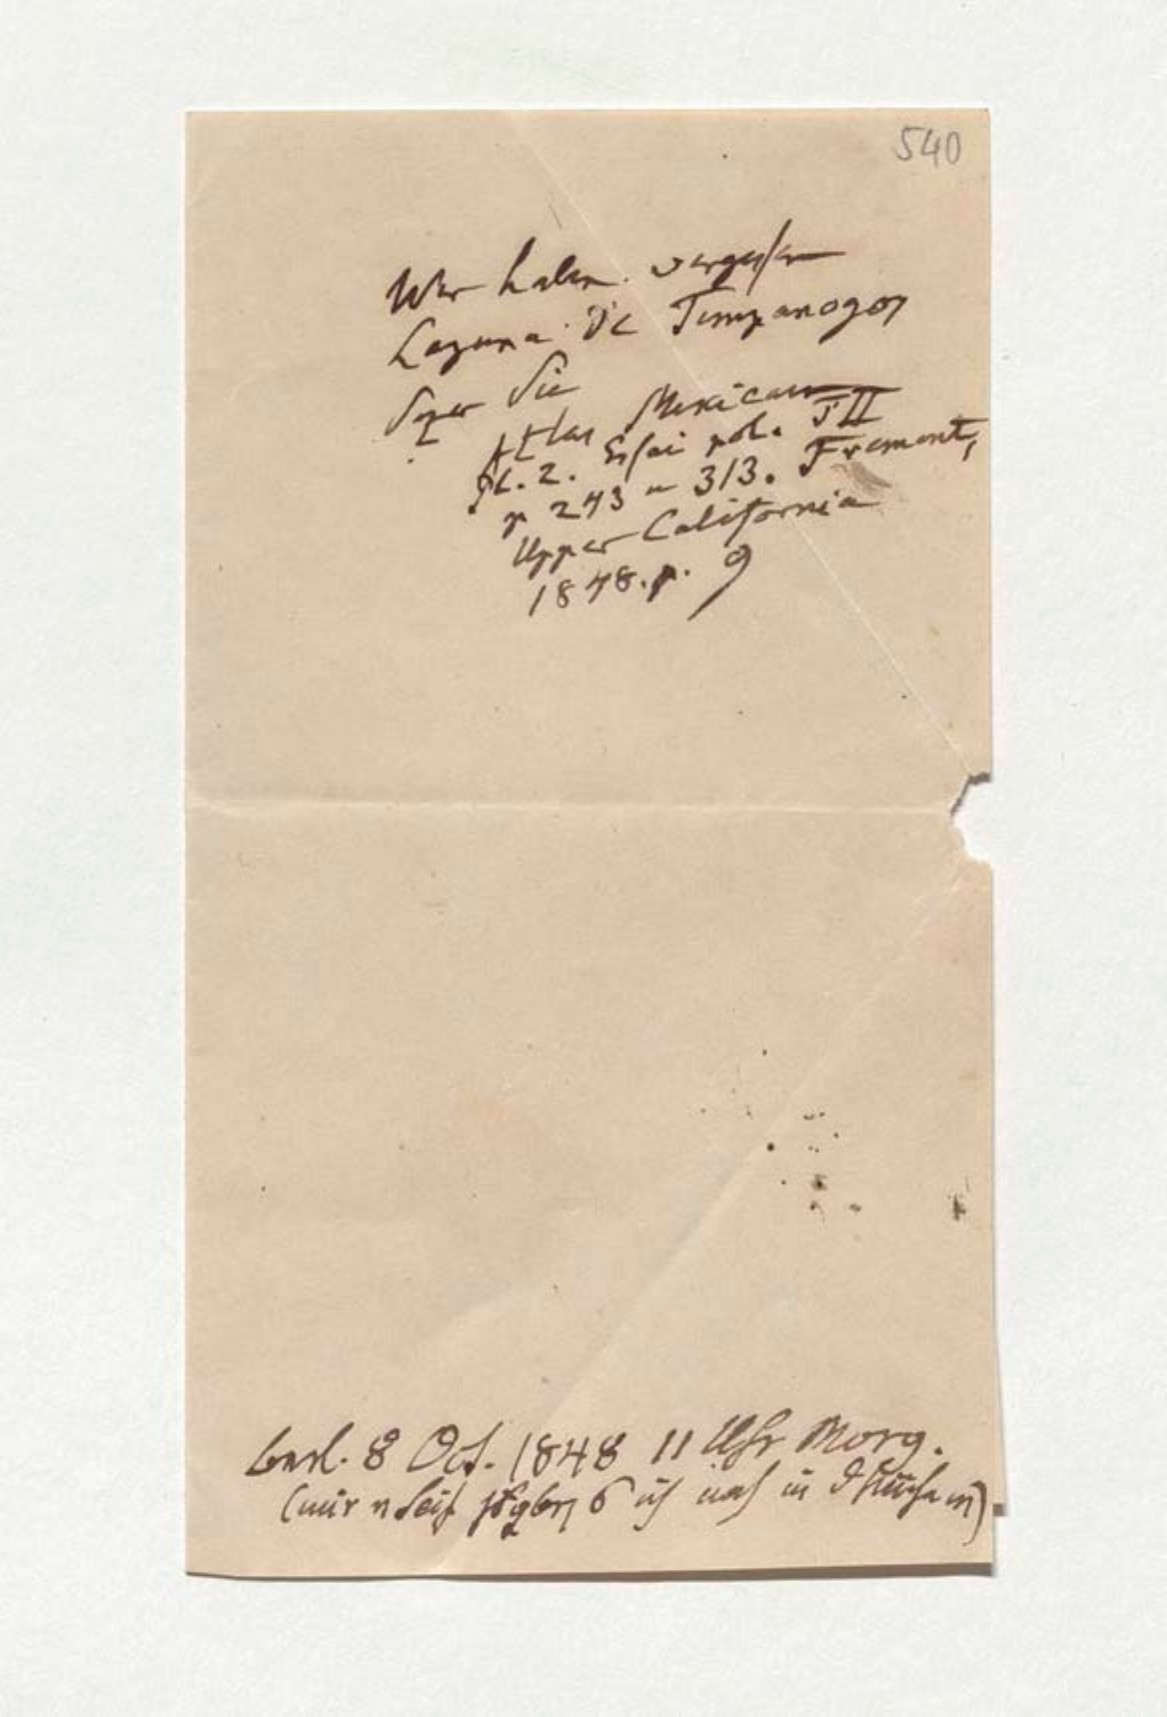 540
Wir haben vergessen
Laguna de Timpanogos
Sagen Sie
Atlas Mexicain
Pl. 2. Essai pol. T II
p 243 u 313. Fremont,
Upper California
1848. p. 9
8 Oct. 1848 11 Uhr Morg.
(mir ich noch in